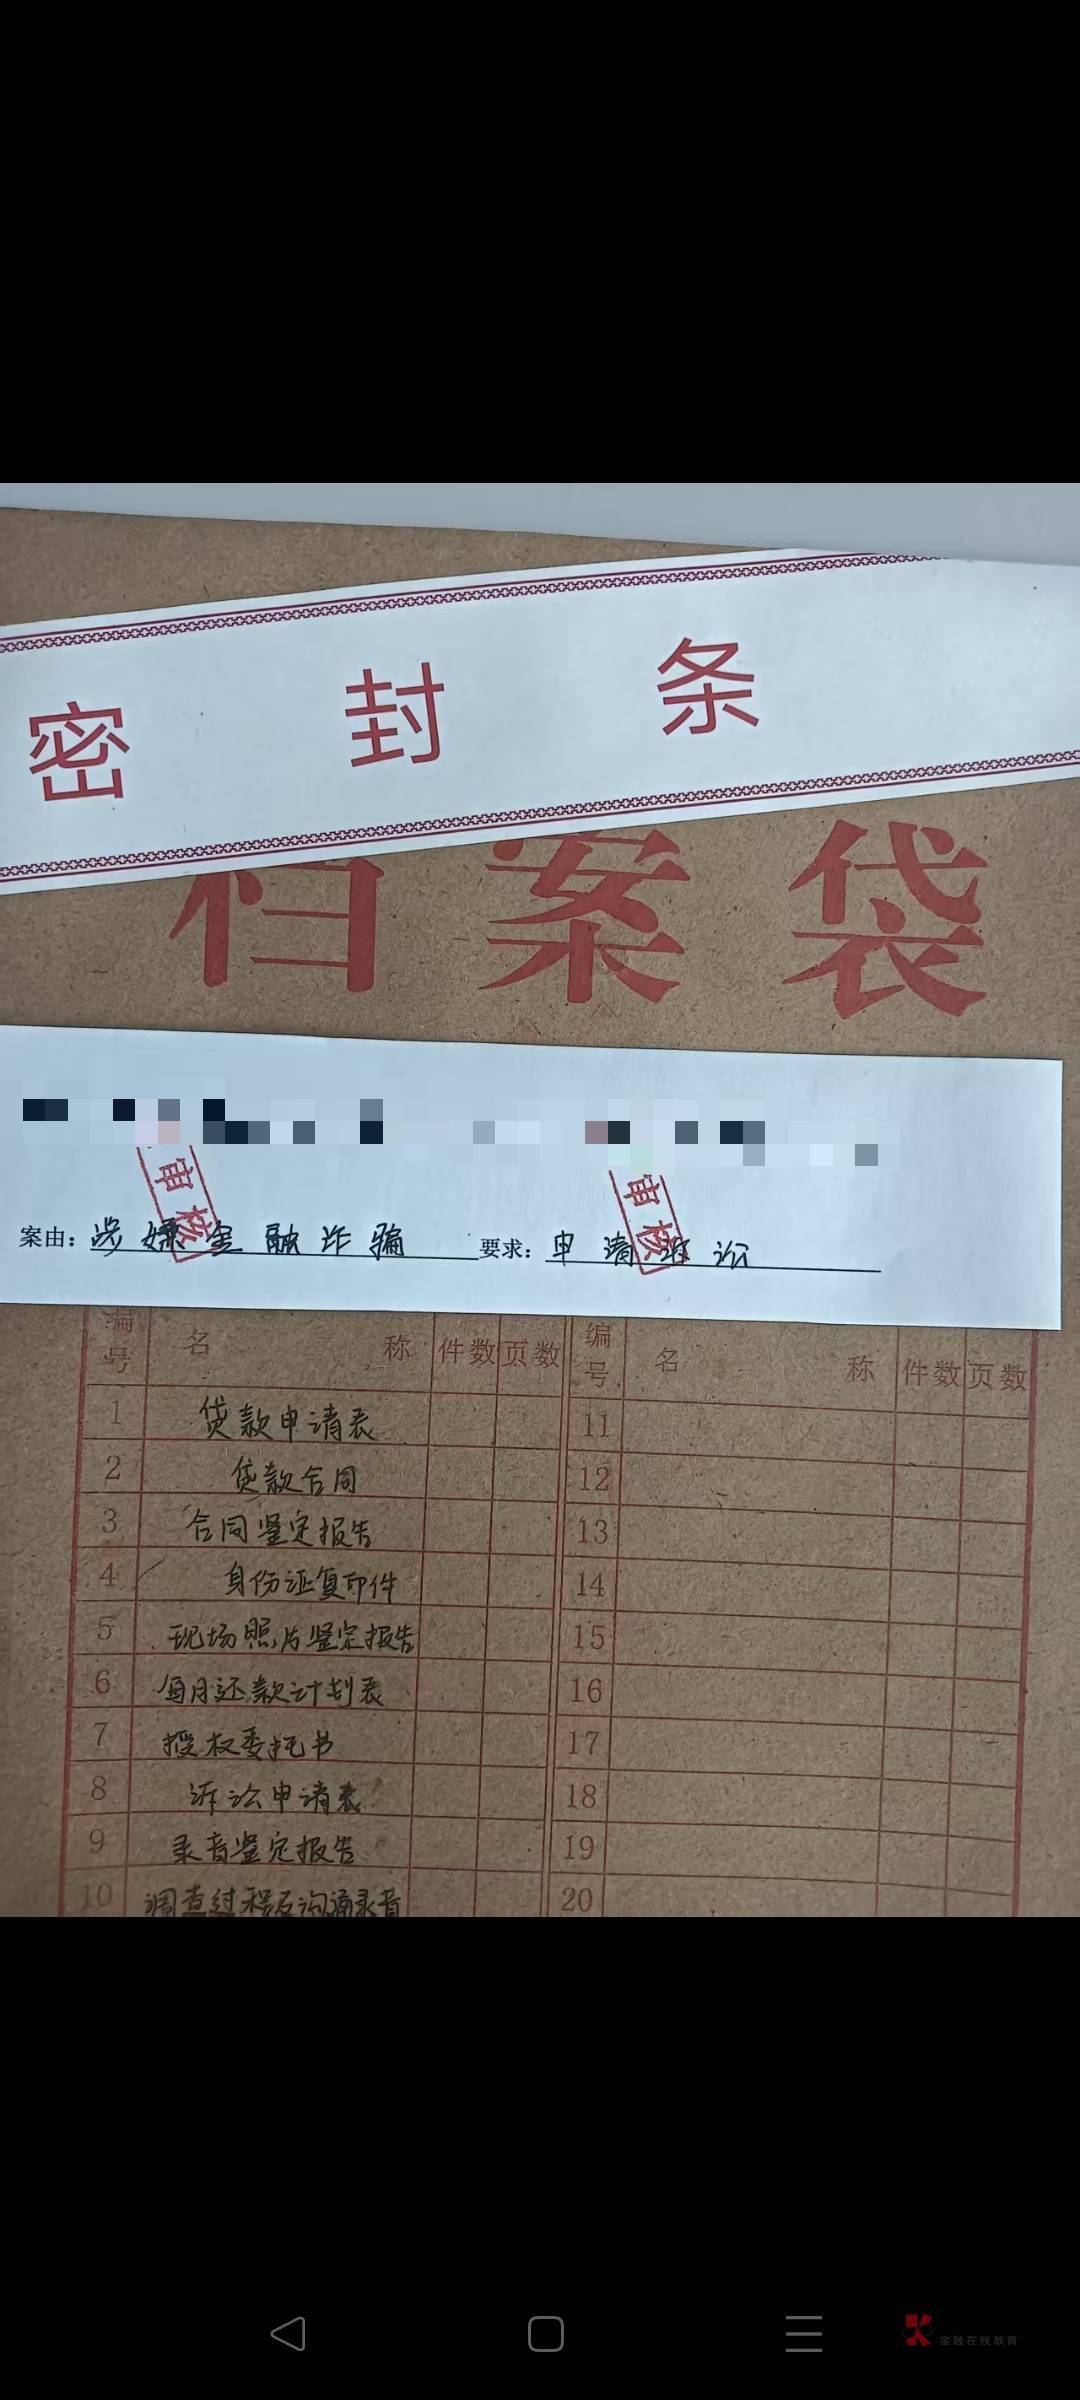 密封条
档案袋
审核 审核
案由：涉嫌金融诈骗 要求：申请诉讼
编号 名称 件数 页数 编号 名称 件数 页数
1 贷款申请表 11
2 贷款合同 12
3 合同鉴定报告 13
4 身份证复印件 14
5 现场照片鉴定报告 15
6 每月还款计划表 16
7 授权委托书 17
8 诉讼申请表 18
9 录音鉴定报告 19
10 调查过程及沟通录音 20
金融在线教育